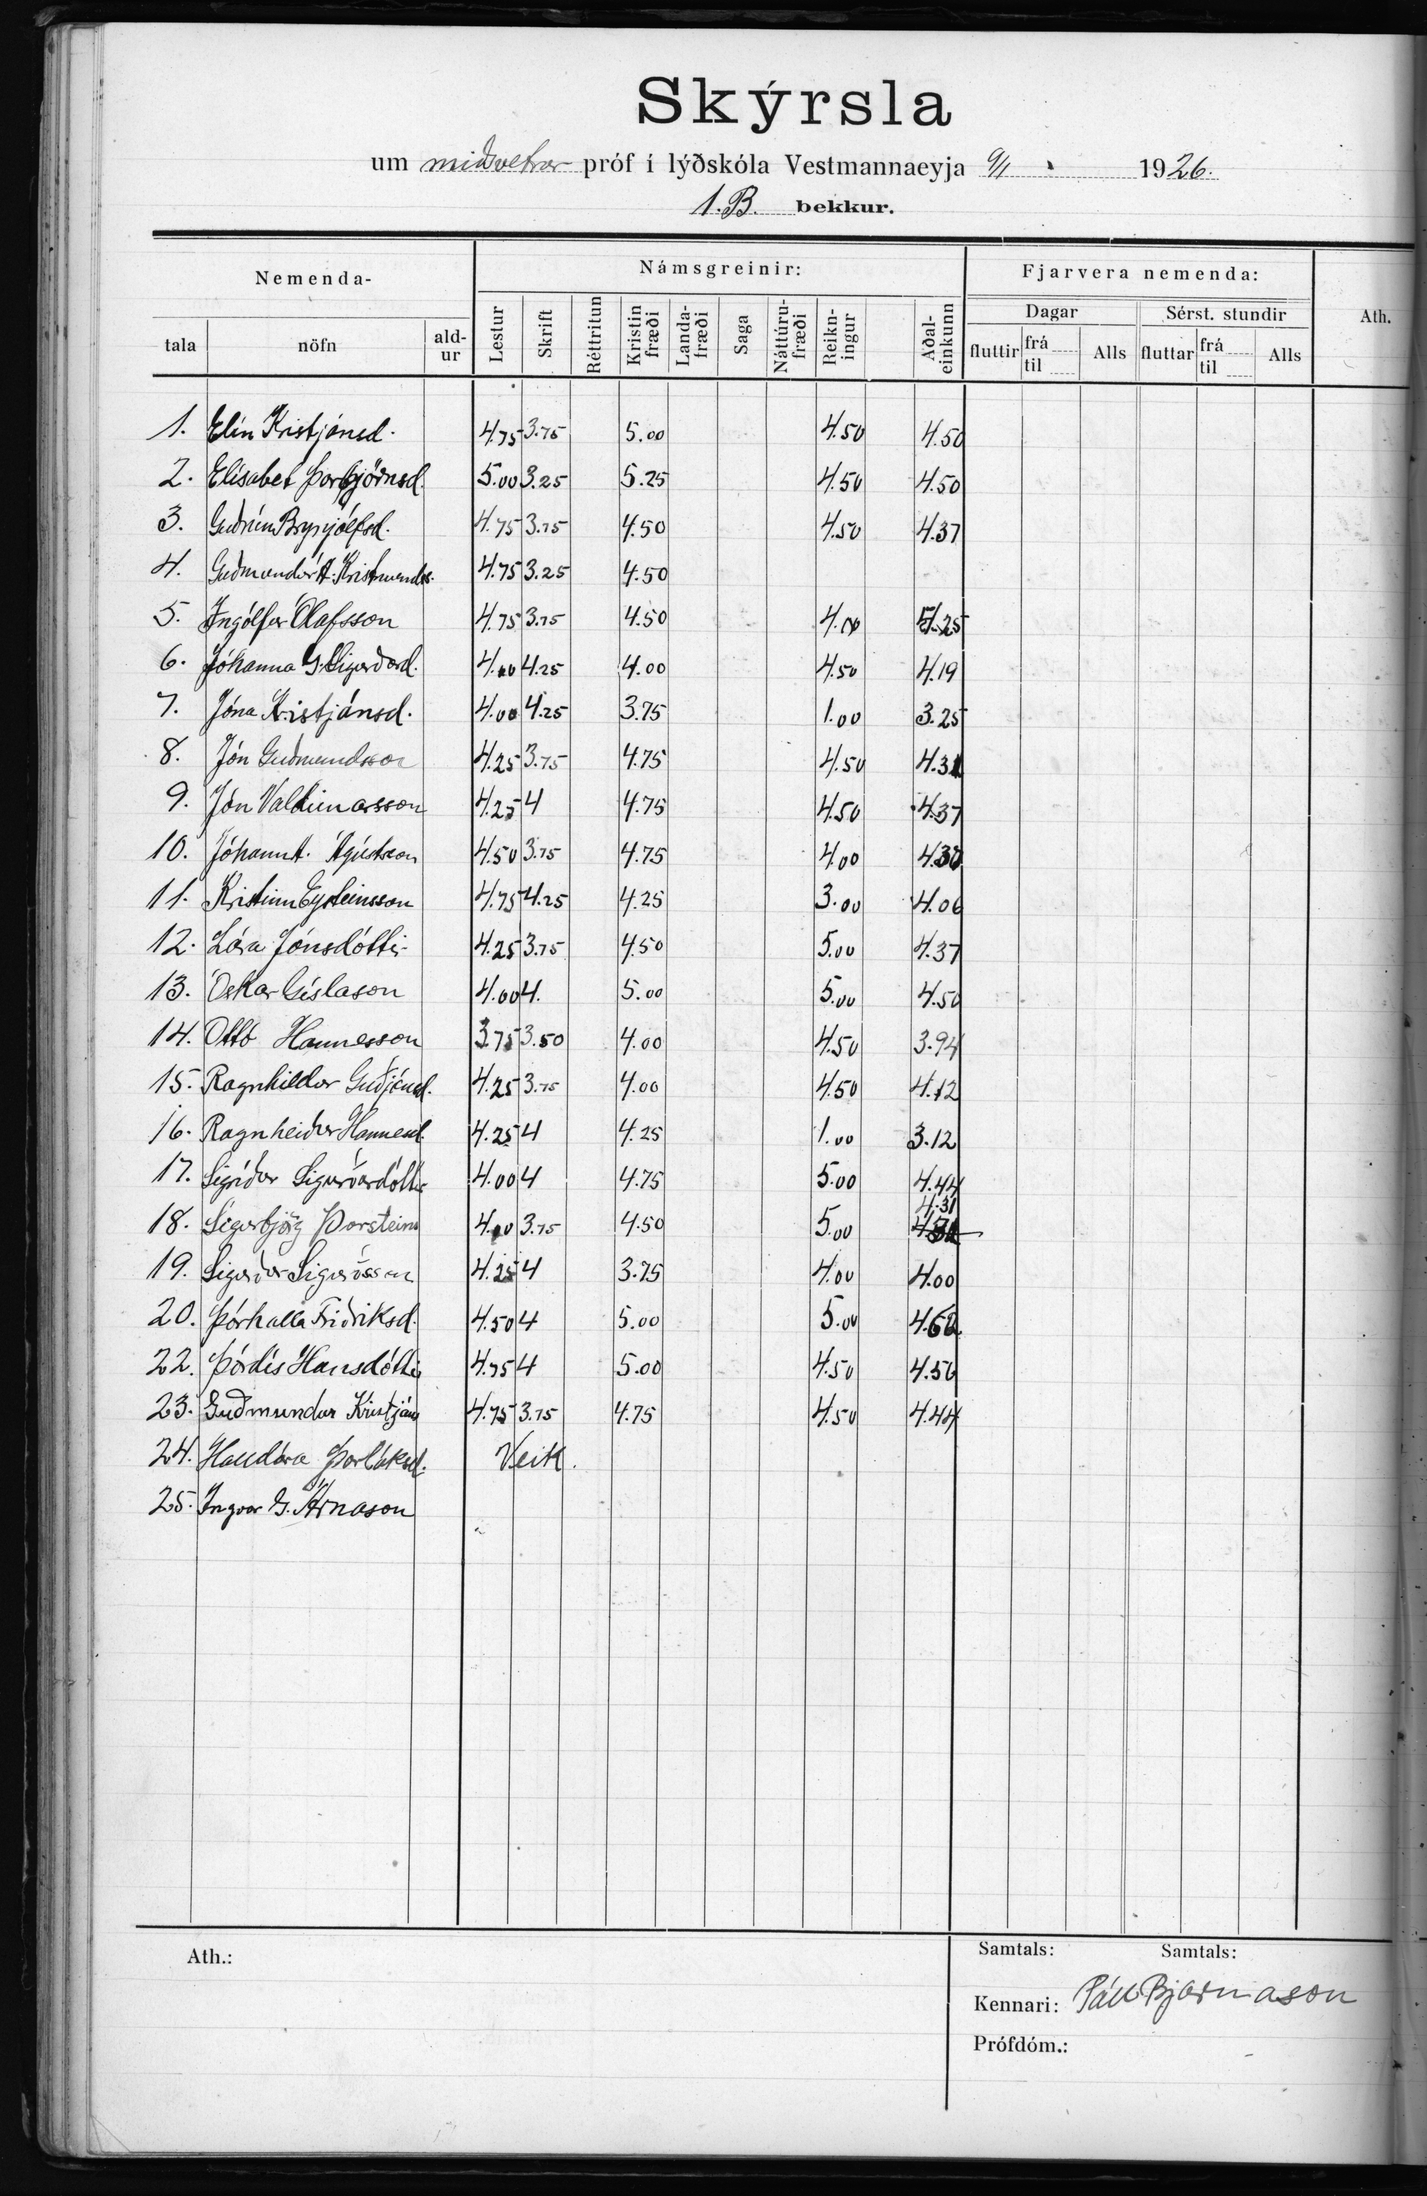 Skýrsla
um miðsvetrar próf í lýðskóla Vestmannaeyja 9/1 1926.
1. B. bekkur.
Nemenda- Námsgreinir: Fjarvera nemenda: Ath.
tala nöfn ald-ur Lestur Skrift Réttritun Kristin fræði Landa-fræði Saga Náttúru-fræði Reikn-ingur Aðal-einkunn Dagar Sérst. stundir
fluttir frá til Alls fluttar frá til Alls
1. Elín Kristjánsd. 4.75 3.75 5.00 4.50 4.50
2. Elísabet Þorbjörnsd. 5.00 3.25 5.25 4.50 4.50
3. Guðrún Brynjólfsd. 4.75 3.75 4.50 4.50 4.37
4. Guðmundur A. Kristmunds. 4.75 3.25 4.50
5. Ingólfur Ólafsson 4.75 3.75 4.50 4.00 4.25
6. Jóhanna G. Sigurðard. 4.00 4.25 4.00 4.50 4.19
7. Jóna Kristjánsd. 4.00 4.25 3.75 1.00 3.25
8. Jón Guðmundsson 4.25 3.75 4.75 4.50 4.31
9. Jón Valdimarsson 4.25 4 4.75 4.50 4.37
10. Jóhann A. Ágústsson 4.50 3.75 4.75 4.00
11. Kristinn Eysteinsson 4.75 4.25 4.25 3.00 4.06
12. Lára Jónsdóttir 4.25 3.75 4.50 5.00 4.37
13. Óskar Gíslason 4.00 4. 5.00 5.00 4.50
14. Ottó Hannesson 3.75 3.50 4.00 4.50 3.94
15. Ragnhildur Guðjónsd. 4.25 3.75 4.00 4.50 4.12
16. Ragnheiður Hannesd. 4.25 4 4.25 1.00 3.12
17. Sigríður Sigurðardóttir 4.00 4 4.75 5.00 4.44
18. Sigurbjörg Þorsteins 4.00 3.75 4.50 5.00 4.31
19. Sigurður Sigurðsson 4.25 4 3.75 4.00 4.00
20. Þórhalla Friðriksd. 4.50 4 5.00 5.00 4.62
22. Þórdís Hansdóttir 4.75 4 5.00 4.50 4.56
23. Guðmundur Kristjáns 4.75 3.75 4.75 4.50 4.44
24. Halldóra Þorláksd. Veik.
25. Ingvar G. Árnason
Ath.: Samtals: Samtals:
Kennari: Páll Bjarnason
Prófdóm.: